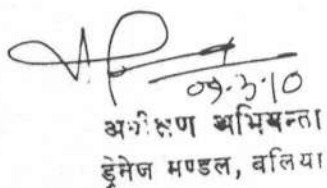 09-3-10
अधीक्षण अभियन्ता
ड्रेनेज मण्डल, बलिया